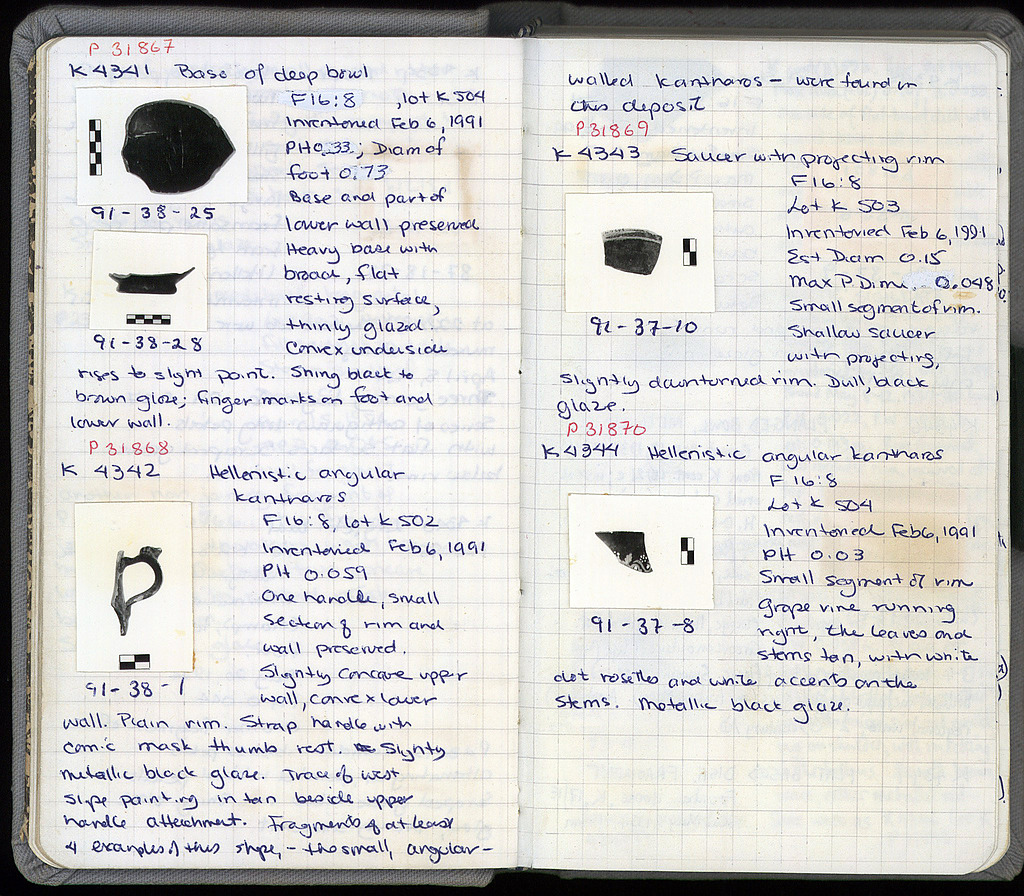 P 31867
K 4341 Base of deep bowl
F16:8 , lot K 504
Inventoried Feb 6, 1991
PH 0.33; Diam of
foot 0.73
Base and part of
lower wall preserved
Heavy base with
broad, flat
resting surface,
thinly glazed.
Convex underside
rises to slight point. Shing black to
brown glaze; finger marks on foot and
lower wall.
91-38-25
91-38-28
P 31868
K 4342 Hellenistic angular
kantharos
F16:8, lot K 502
Inventoried Feb 6, 1991
PH 0.059
One handle, small
section of rim and
wall preserved.
Slightly concave upper
wall, convex lower
wall. Plain rim. Strap handle with
comic mask thumb rest. Slighty
metallic black glaze. Trace of west
slope painting in tan beside upper
handle attachment. Fragments of at least
4 examples of this shape, - the small, angular-
91-38-1
walled kantharos - were found in
this deposit
P 31869
K 4343 Saucer with projecting rim
F16:8
Lot K 503
Inventoried Feb 6, 1991
Est Diam 0.15
Max P Dim. 0.048
Small segment of rim.
Shallow saucer
with projecting,
slightly downturned rim. Dull, black
glaze.
91-37-10
P 31870
K 4344 Hellenistic angular kantharos
F16:8
Lot K 504
Inventoried Feb 6, 1991
PH 0.03
Small segment of rim
Grape vine running
right, the leaves and
stems tan, with white
dot rosettes and white accents on the
stems. Metallic black glaze.
91-37-8